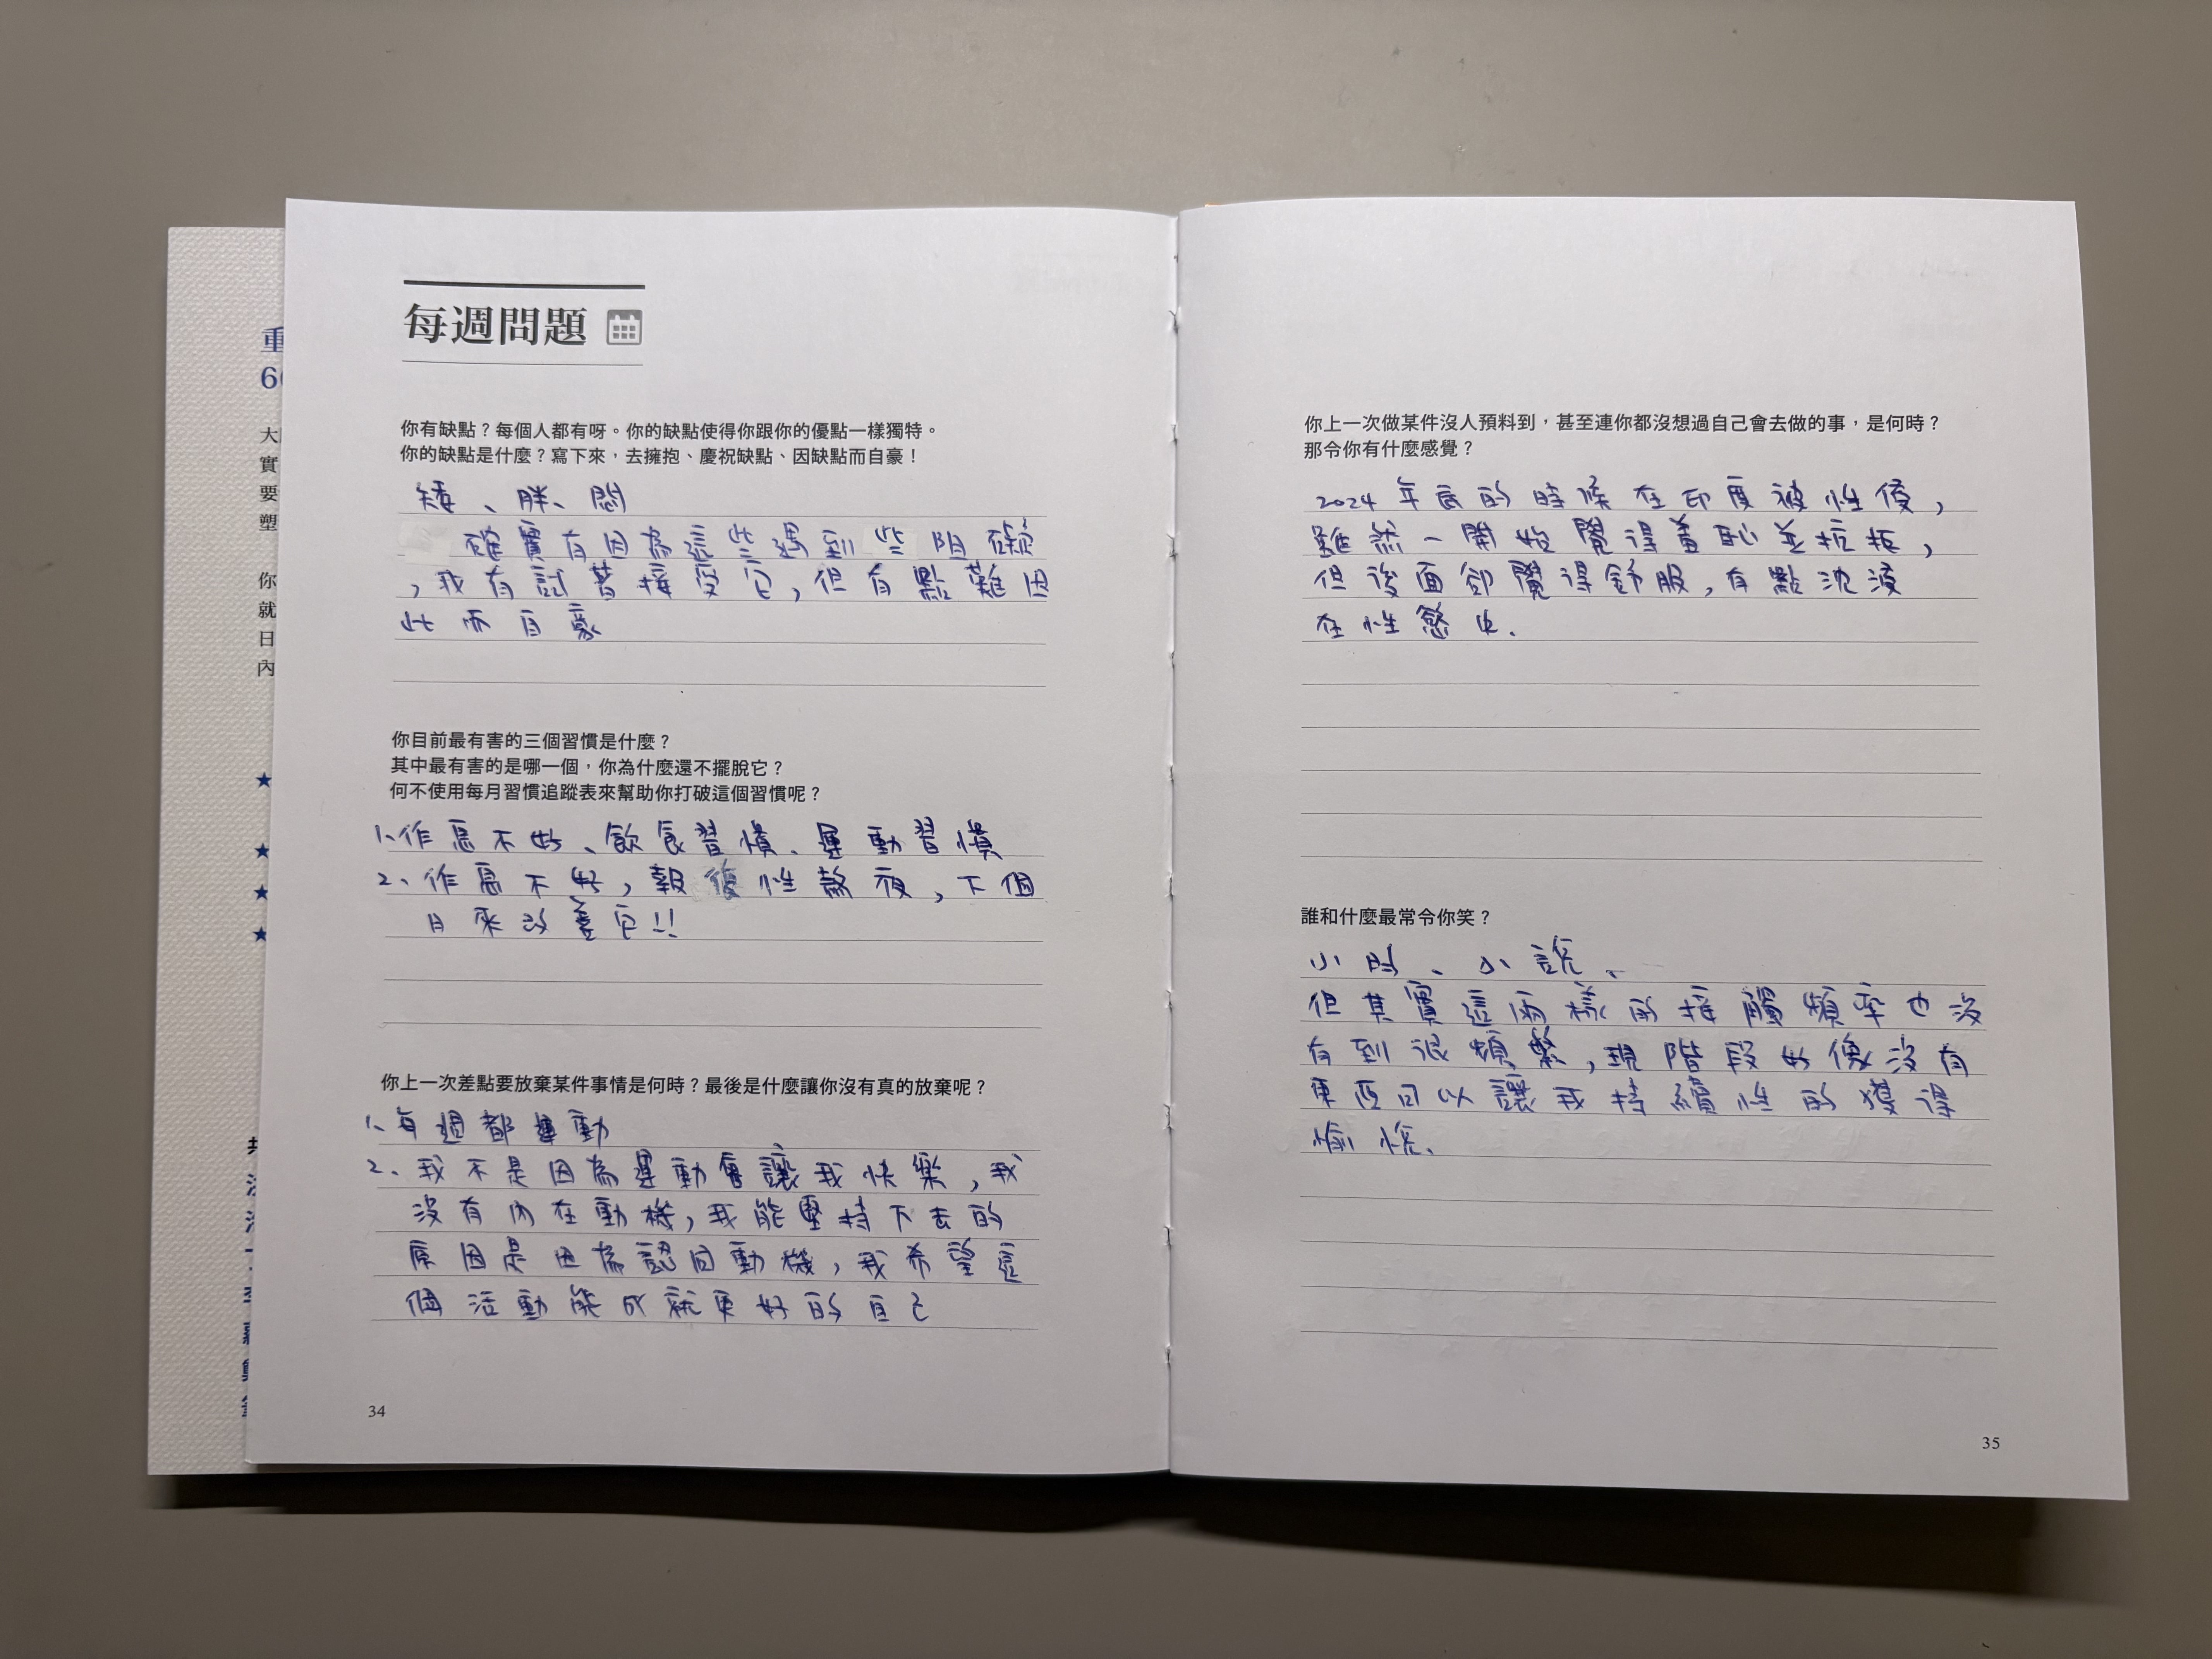 重
60
大
實
要
塑
你
就
日
內
每週問題
你有缺點？每個人都有呀。你的缺點使得你跟你的優點一樣獨特。
你的缺點是什麼？寫下來，去擁抱、慶祝缺點、因缺點而自豪！
矮、胖、悶
確實有因為這些遇到些阻礙
，我有試著接受它，但有點難因
此而自豪
你目前最有害的三個習慣是什麼？
其中最有害的是哪一個，你為什麼還不擺脫它？
何不使用每月習慣追蹤表來幫助你打破這個習慣呢？
1、作息不好、飲食習慣、運動習慣
2、作息不好，報復性熬夜，下個
月來改善它!!
你上一次差點要放棄某件事情是何時？最後是什麼讓你沒有真的放棄呢？
1、每週都運動
2、我不是因為運動會讓我快樂，我
沒有內在動機，我能堅持下去的
原因是因為認同動機，我希望這
個活動能成就更好的自己
34
你上一次做某件沒人預料到，甚至連你都沒想過自己會去做的事，是何時？
那令你有什麼感覺？
2024年底的時候在印度被性侵，
雖然一開始覺得羞恥並抗拒，
但後面卻覺得舒服，有點沈浸
在性慾中、
誰和什麼最常令你笑？
小說、
但其實這兩樣的接觸頻率也沒
有到很頻繁，現階段好像沒有
東西可以讓我持續性的獲得
愉悅、
35